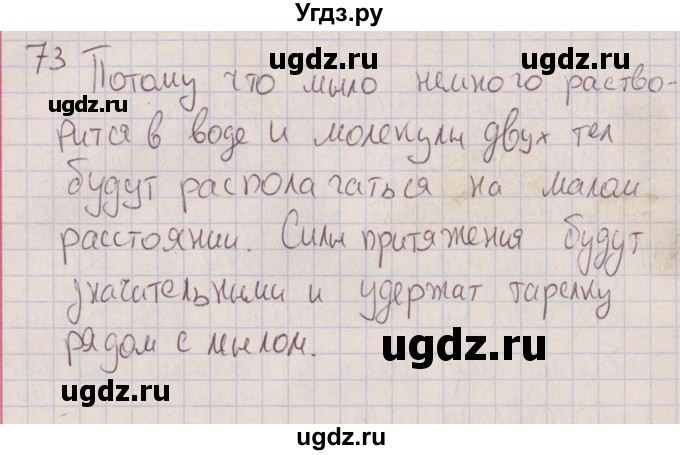 Угдз.ру
ugdz.ru
73 Потому что мыло немного раство-
ugdz.ru ugdz.ru
рится в воде и молекулы двух тел
будут располагаться на малом
расстоянии. Силы притяжения будут
значительными и удержат тарелку
рядом с мылом.
ugdz.ru ugdz.ru
ugdz.ru